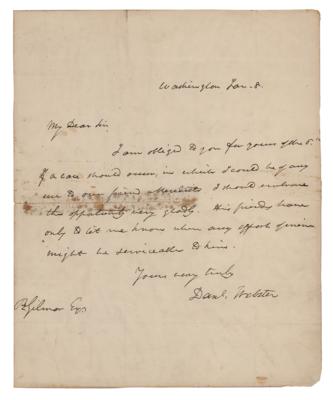 Washington Jan. 8.
My Dear Sir,
I am obliged to you for yours of the 6.th
If a case should occur, in which I could be of any
use to our friend I should embrace
the opportunity very gladly. His friends have
only to let me know when any effort of mine
might be serviceable to him.
Yours very truly
Danl. Webster
R. Gilmor Esqr